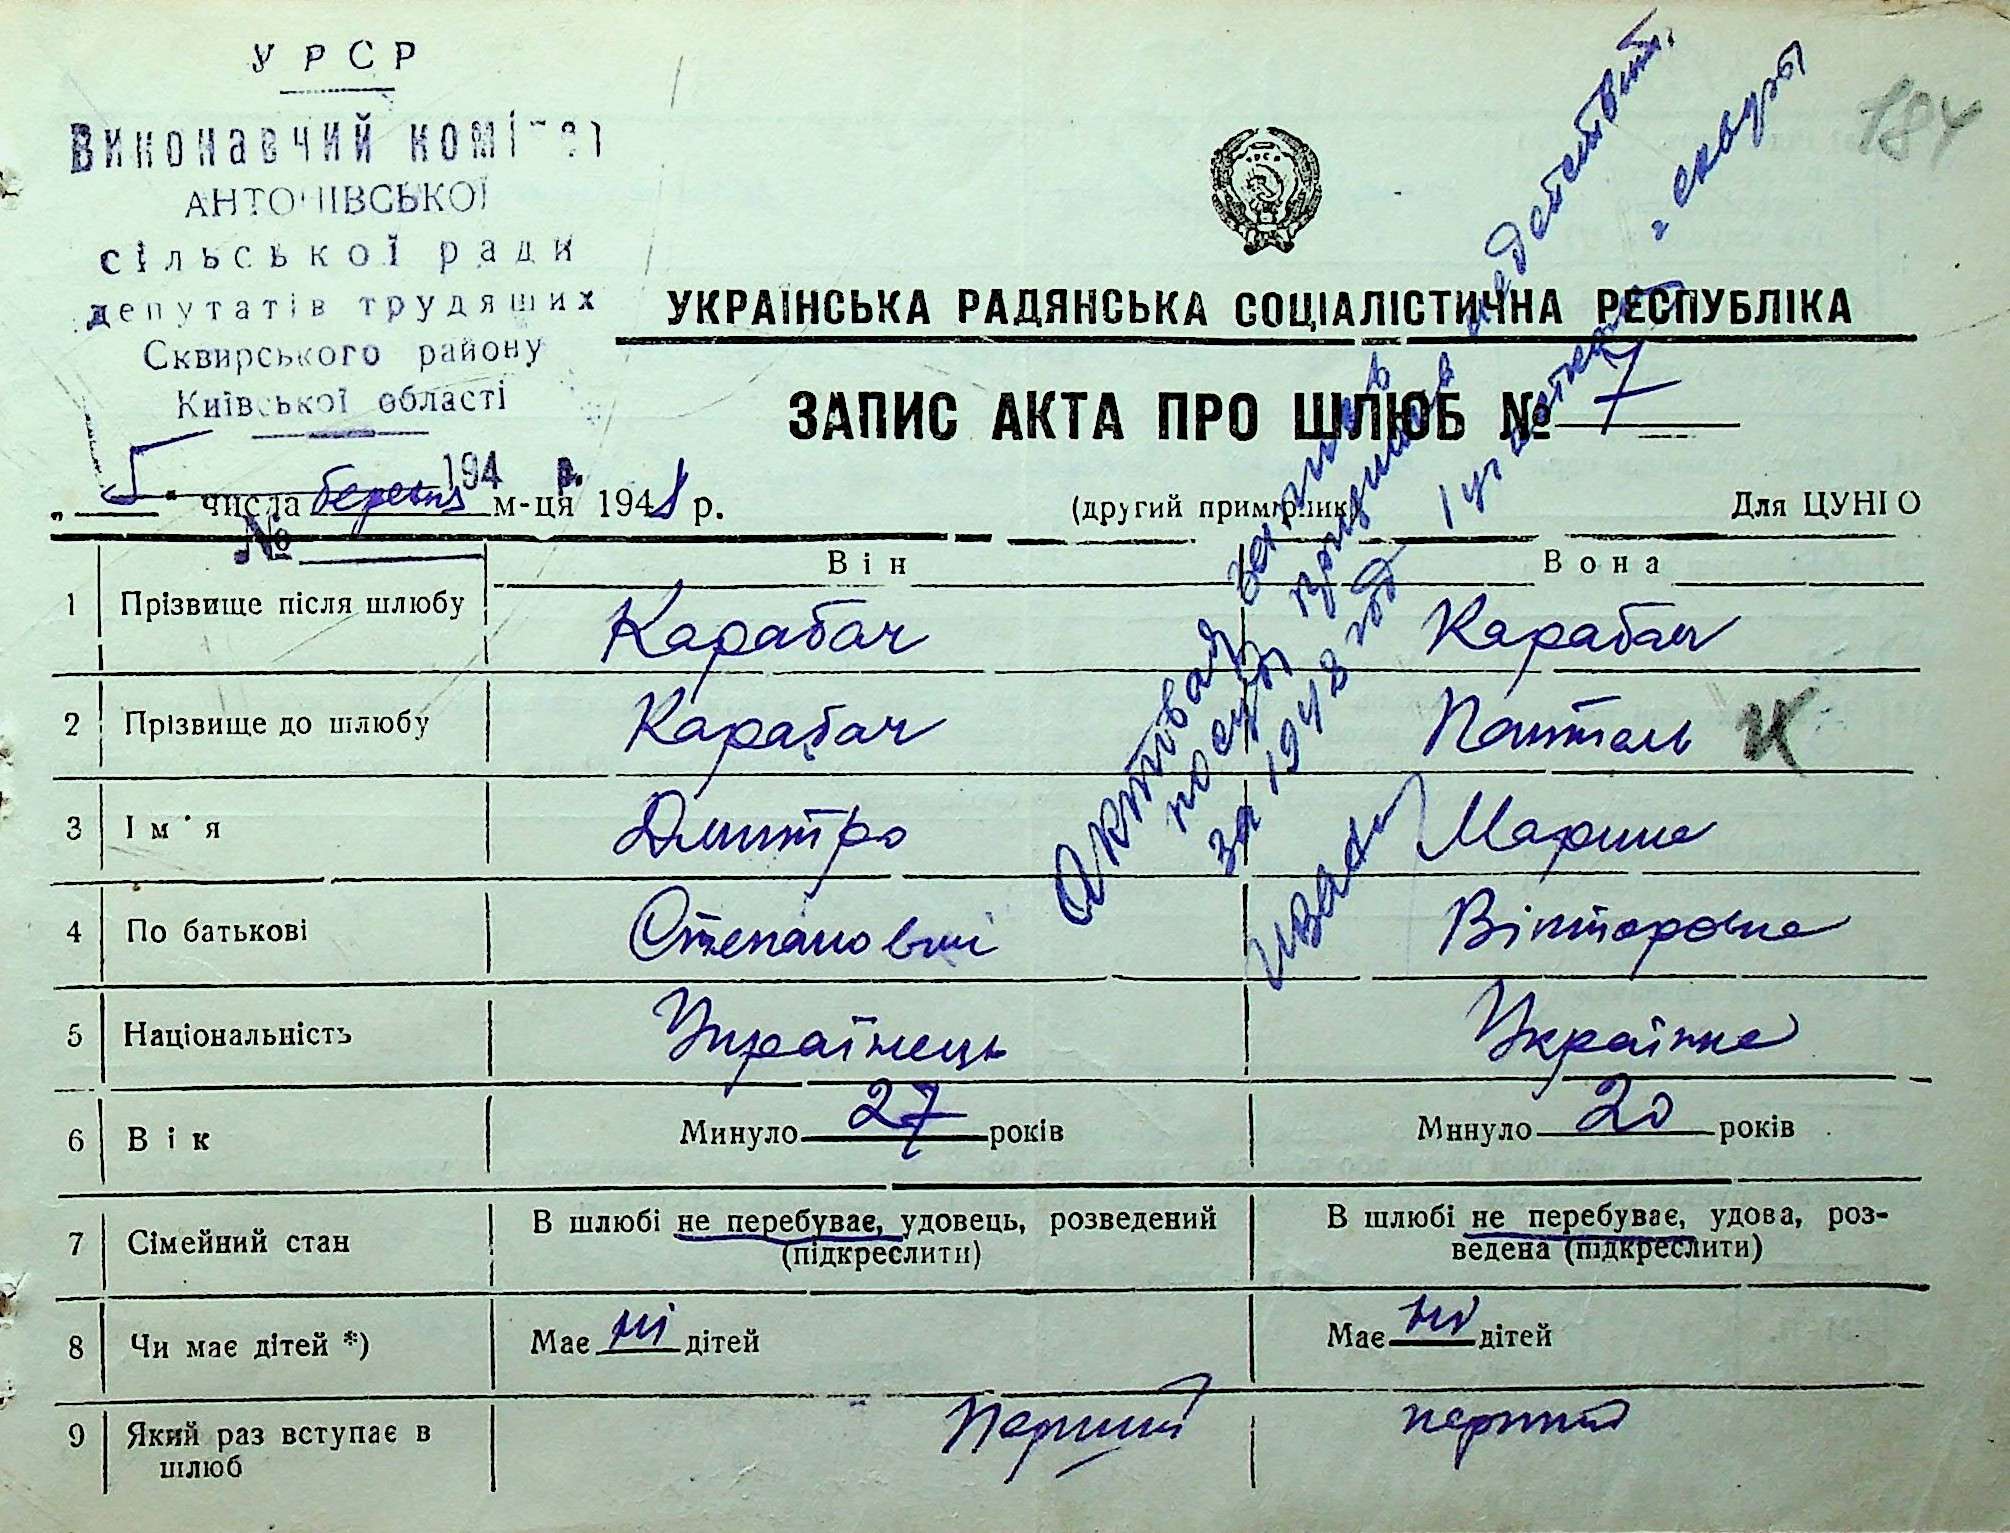 У Р С Р
Виконавчий комітет
АНТОНІВСЬКОЇ
сільської ради
депутатів трудящих
Сквирського району
Київської області
194 р.
№
184
УКРАЇНСЬКА РАДЯНСЬКА СОЦІАЛІСТИЧНА РЕСПУБЛІКА
ЗАПИС АКТА ПРО ШЛЮБ № 7
„ 5 " числа березня м-ця 1948 р.
(другий примірник)
Для ЦУНГО
Він Вона
1 Прізвище після шлюбу Карабач Карабач
2 Прізвище до шлюбу Карабач К
3 Ім'я Дмитро Марина
4 По батькові Степанович Вікторовна
5 Національність Українець Українка
6 Вік Минуло 27 років Минуло 20 років
7 Сімейний стан В шлюбі не перебуває, удовець, розведений (підкреслити) В шлюбі не перебуває, удова, розведена (підкреслити)
8 Чи має дітей *) Має ні дітей Має ні дітей
9 Який раз вступає в шлюб Перший перший
Актовая запись
за 1948 год